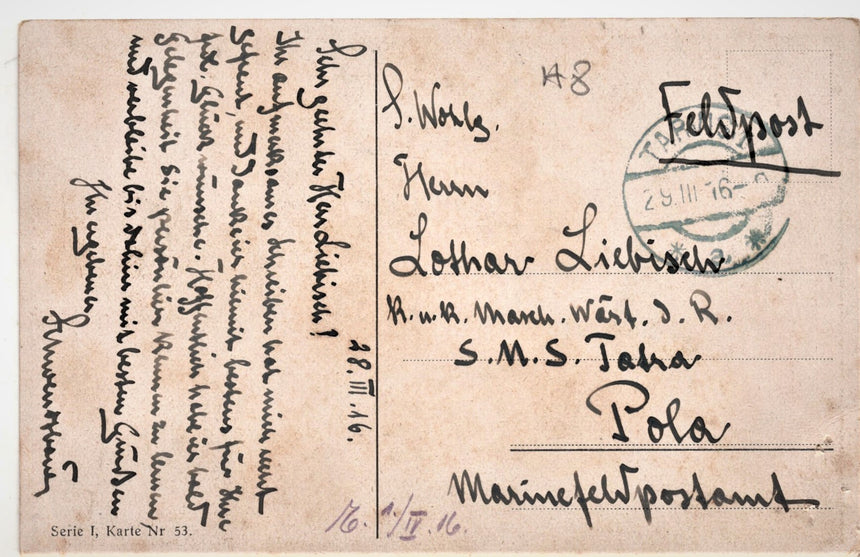 Sehr geehrter Herr Liebisch!
28.III.16.
Ihr aufmerksames Schreiben hat mich sehr
gefreut, und danke ich hiemit bestens für Ihre
Glückwünsche. Hoffentlich habe ich bald
Gelegenheit Sie persönlich kennen zu lernen
und verbleibe bis dahin mit besten Grüßen
Ihr ergebener
Serie I, Karte Nr 53.
H8
Feldpost
29.III 16
S. Wohlg.
Herrn
Lothar Liebisch
K. u. K. Masch. Wärt. d. R.
S. M. S. Tatra
Pola
Marinefeldpostamt
1/IV. 16.